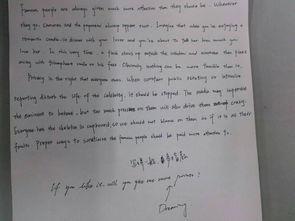 Famous people are always given much more attention than they should be. Wherever
they go, Cameras and the paparazzi always appear soon. Imagine that when you're enjoying a
romantic candle-lit dinner with your lover and you're about to tell her how much you
love her. In this very time, a flash shows up outside the window and someone
away with triumphant smile on his face. Obviously nothing can be more terrible than it.
Privacy is the right that everyone owns. When constant public or intensive
reporting disturb the life of the celebrity, it should be stopped. The media may supervise
the eminent to behave, but too much pressure on them will also drive them crazy.
Everyone has the skeleton in cupboard, so we should not blame on them as if it is all their
faults. Proper ways to scrutinize the famous people should be paid more attention to.
If you like it, will you give me some praise?
Dreaming